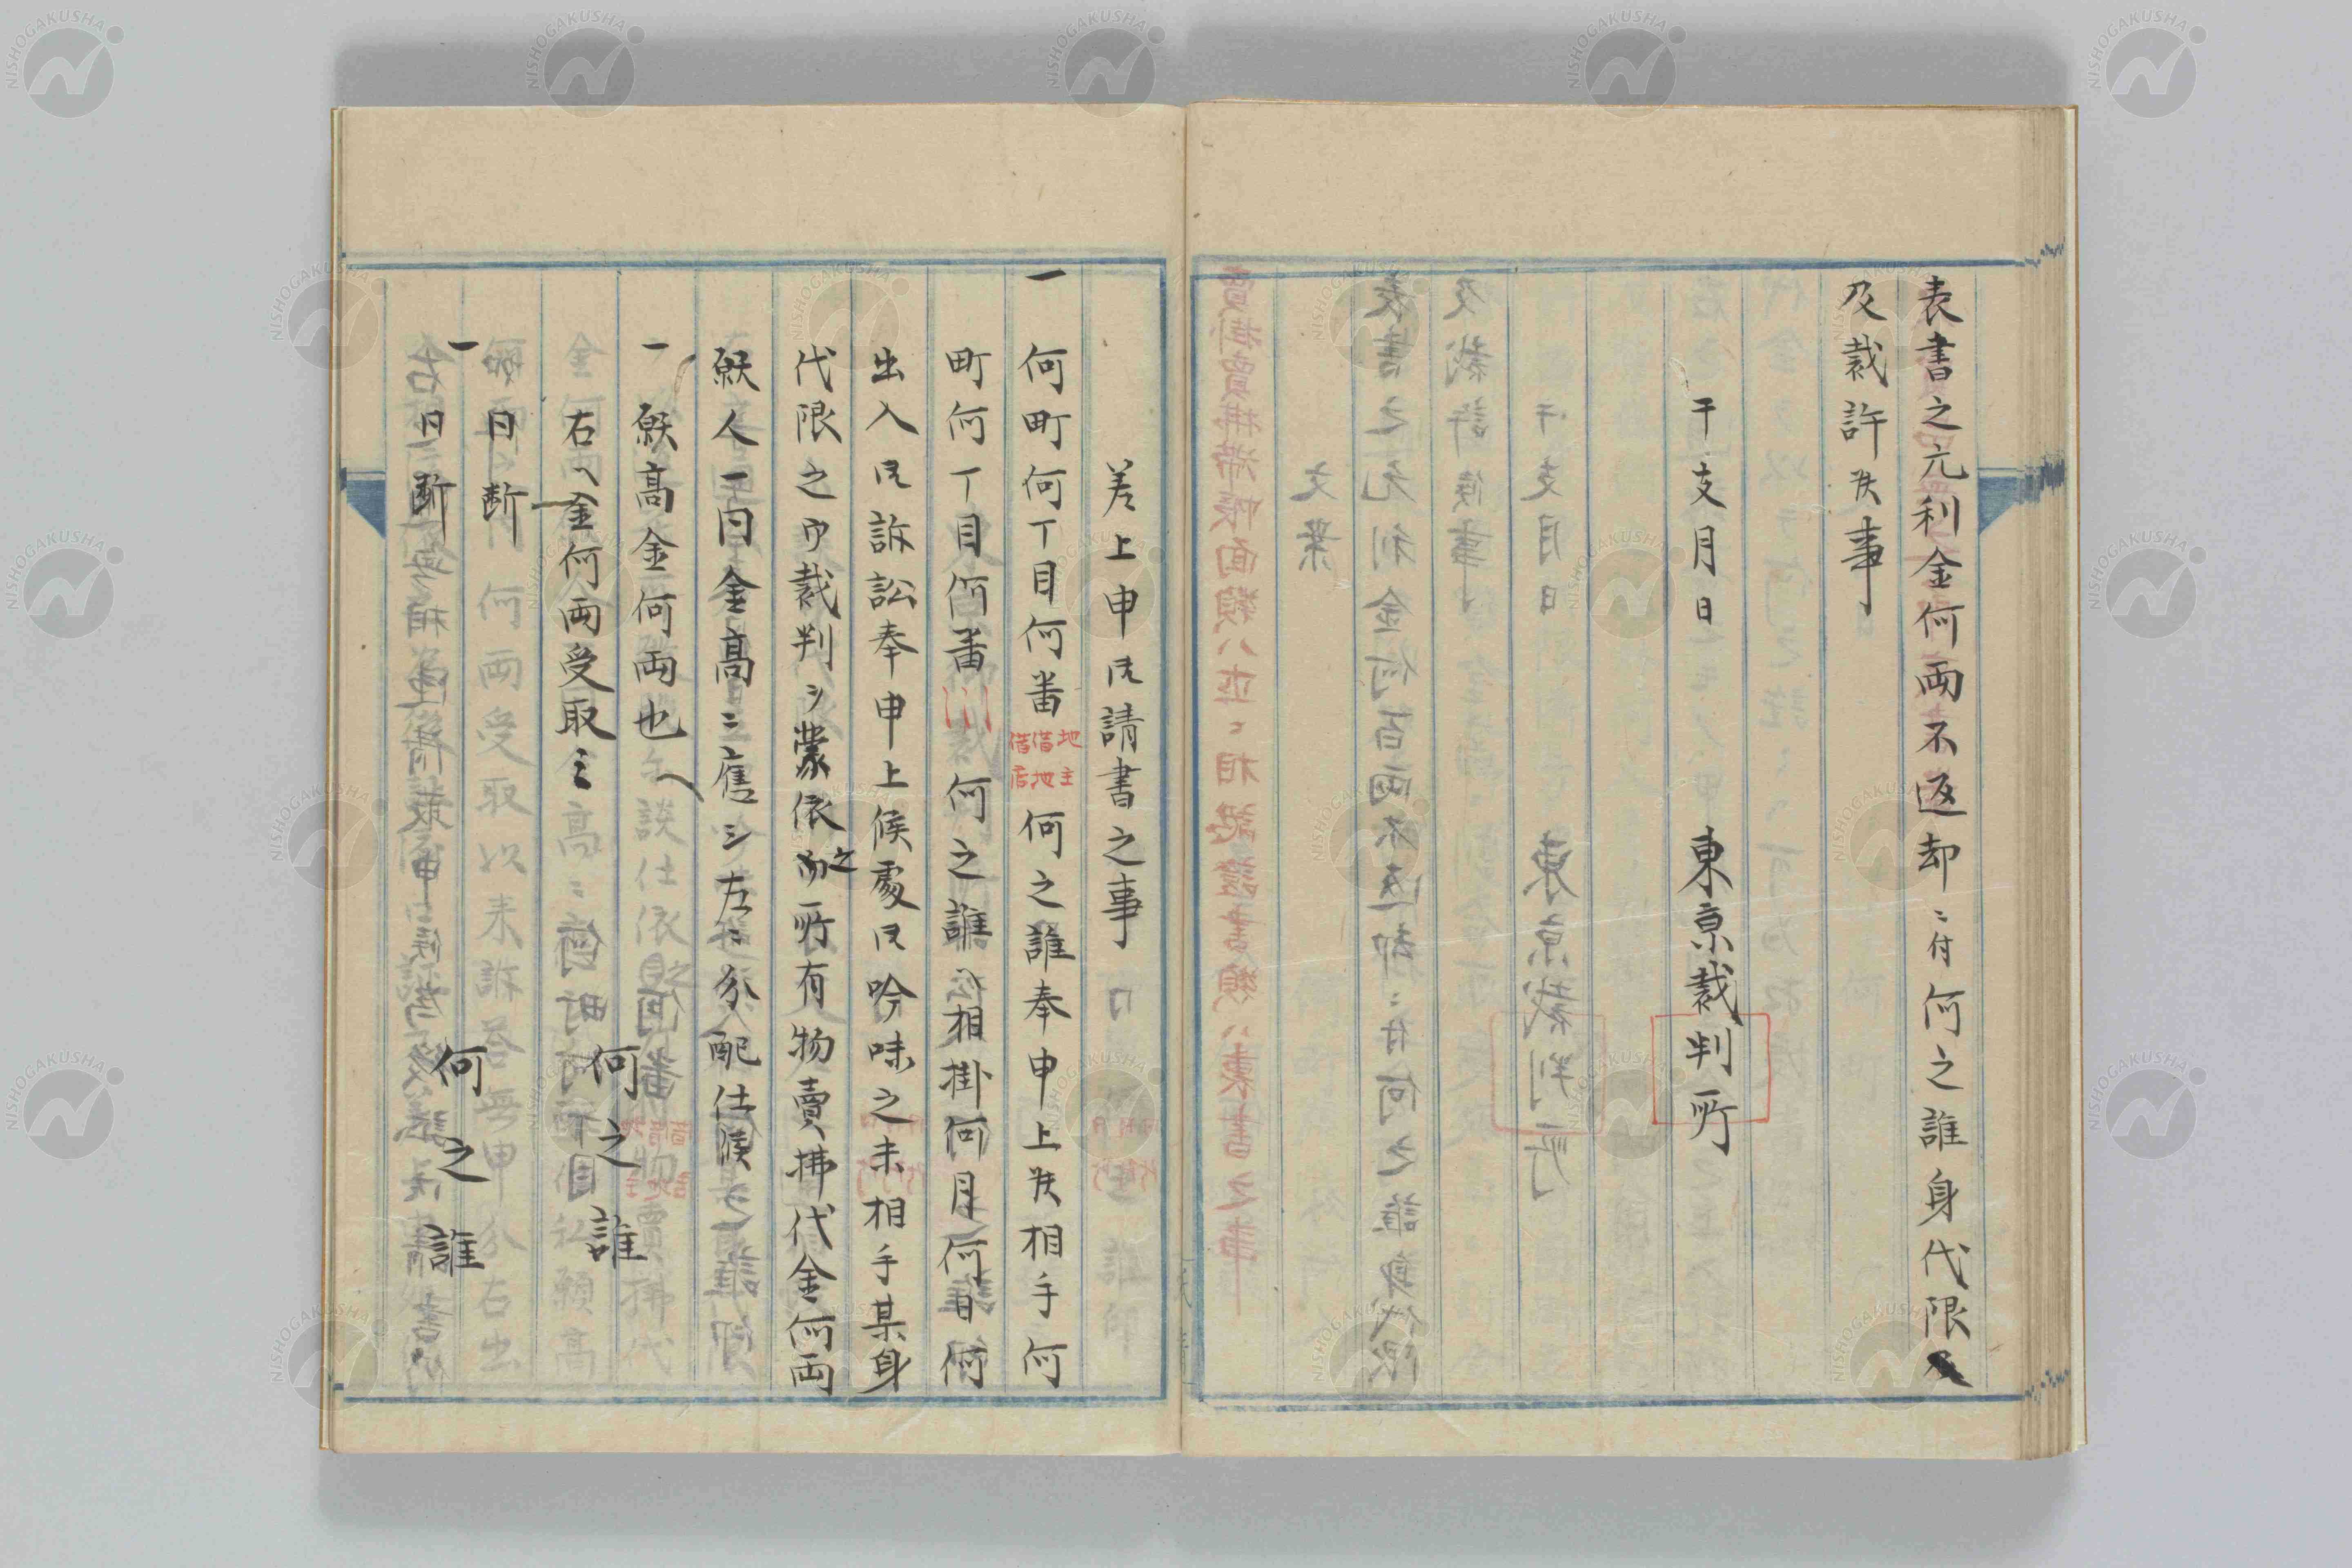 表書之元利金何両不返却ニ付何之誰身代限
及裁許候事
干支月日　東京裁判所
差上申御請書之事
一何町何丁目何番地主借地借店何之誰奉申上候相手何
町何丁目何番何之誰へ相掛何月何日何
出入御訴訟奉申上候處御吟味之末相手某身
代限之御裁判ヲ蒙依之而所有物賣拂代金何両
願人一同金高ニ應シ左ニ分配仕候
一願高金何両也　何之誰
右へ金何両受取
一同断　何之誰
同断
NISHOGAKUSHA